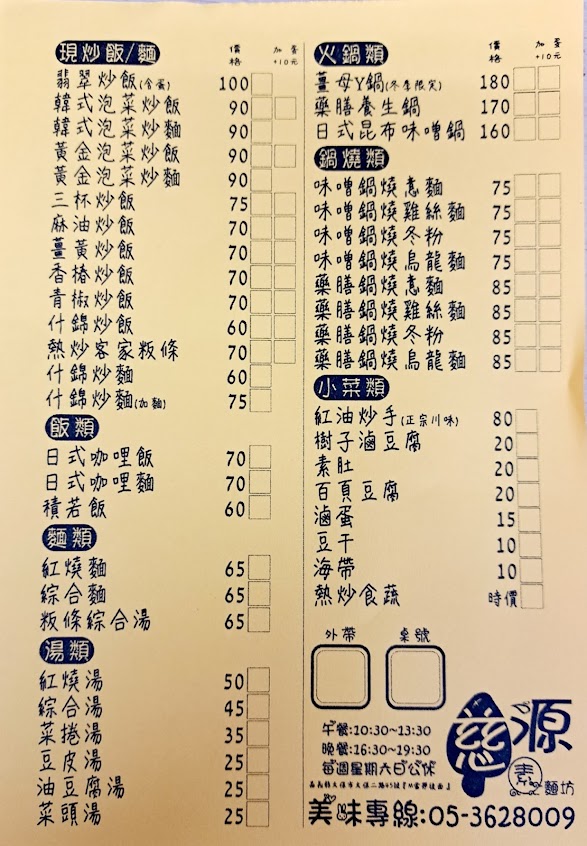 現炒飯/麵 價格 加蛋+10元
翡翠炒飯(含蛋) 100
韓式泡菜炒飯 90
韓式泡菜炒麵 90
黃金泡菜炒飯 90
黃金泡菜炒麵 90
三杯炒飯 75
麻油炒飯 70
薑黃炒飯 70
香椿炒飯 70
青椒炒飯 70
什錦炒飯 60
熱炒客家粄條 70
什錦炒麵 60
什錦炒麵(加麵) 75
飯類
日式咖哩飯 70
日式咖哩麵 70
積若飯 60
麵類
紅燒麵 65
綜合麵 65
粄條綜合湯 65
湯類
紅燒湯 50
綜合湯 45
菜捲湯 35
豆皮湯 25
油豆腐湯 25
菜頭湯 25
火鍋類 價格 加蛋+10元
薑母Y鍋(冬季限定) 180
藥膳養生鍋 170
日式昆布味噌鍋 160
鍋燒類
味噌鍋燒意麵 75
味噌鍋燒雞絲麵 75
味噌鍋燒冬粉 75
味噌鍋燒烏龍麵 75
藥膳鍋燒意麵 85
藥膳鍋燒雞絲麵 85
藥膳鍋燒冬粉 85
藥膳鍋燒烏龍麵 85
小菜類
紅油炒手(正宗川味) 80
樹子滷豆腐 20
素肚 20
百頁豆腐 20
滷蛋 15
豆干 10
海帶 10
熱炒食蔬 時價
外帶 桌號
午餐:10:30~13:30
晚餐:16:30~19:30
每週星期六日公休
慈源
素麵坊
美味專線:05-3628009